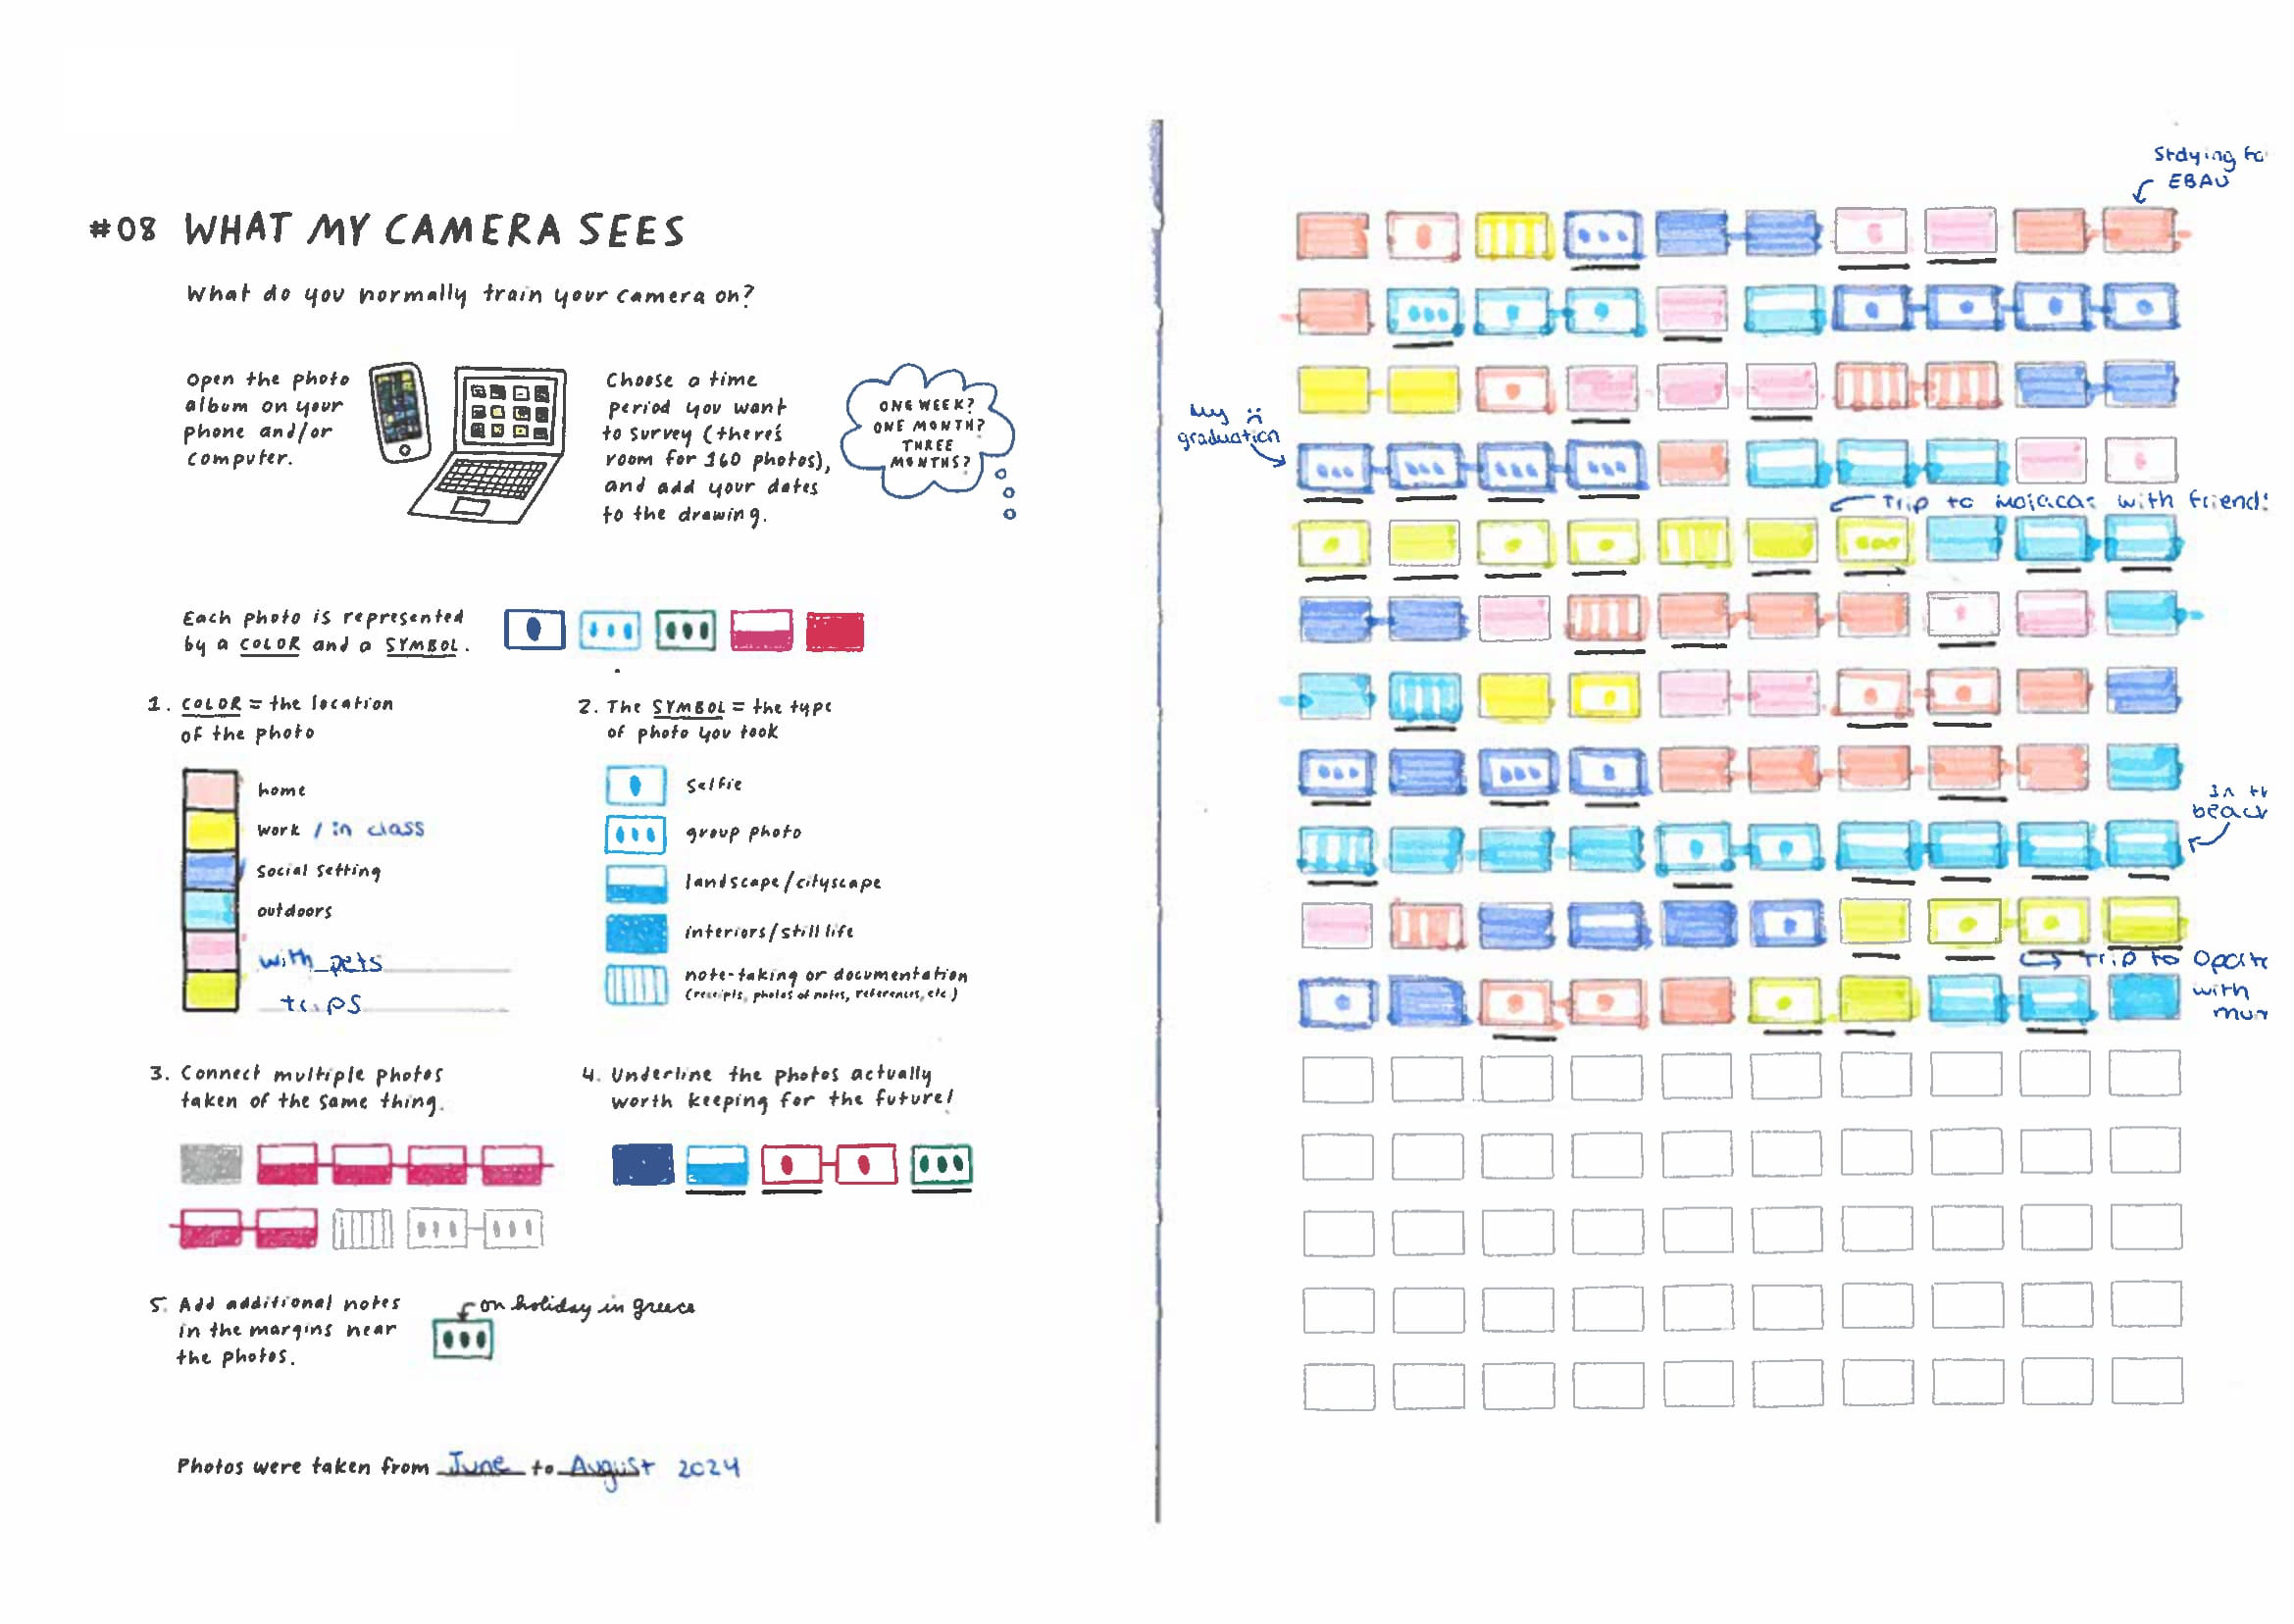 #08 WHAT MY CAMERA SEES
What do you normally train your camera on?
Open the photo
album on your
phone and/or
computer.
Choose a time
period you want
to survey (there's
room for 160 photos),
and add your dates
to the drawing.
ONE WEEK?
ONE MONTH?
THREE
MONTHS?
Each photo is represented
by a COLOR and a SYMBOL.
1. COLOR = the location
of the photo
home
work / in class
social setting
outdoors
with pets
trips
2. The SYMBOL = the type
of photo you took
selfie
group photo
landscape/cityscape
interiors/still life
note-taking or documentation
(receipts, photos of notes, references, etc.)
3. Connect multiple photos
taken of the same thing.
4. Underline the photos actually
worth keeping for the future!
5. Add additional notes
in the margins near
the photos.
on holiday in greece
Photos were taken from June to August 2024
Stdying fo
EBAU
My :(
graduation
Trip to with friends
In th
beach
Trip to
with
mum